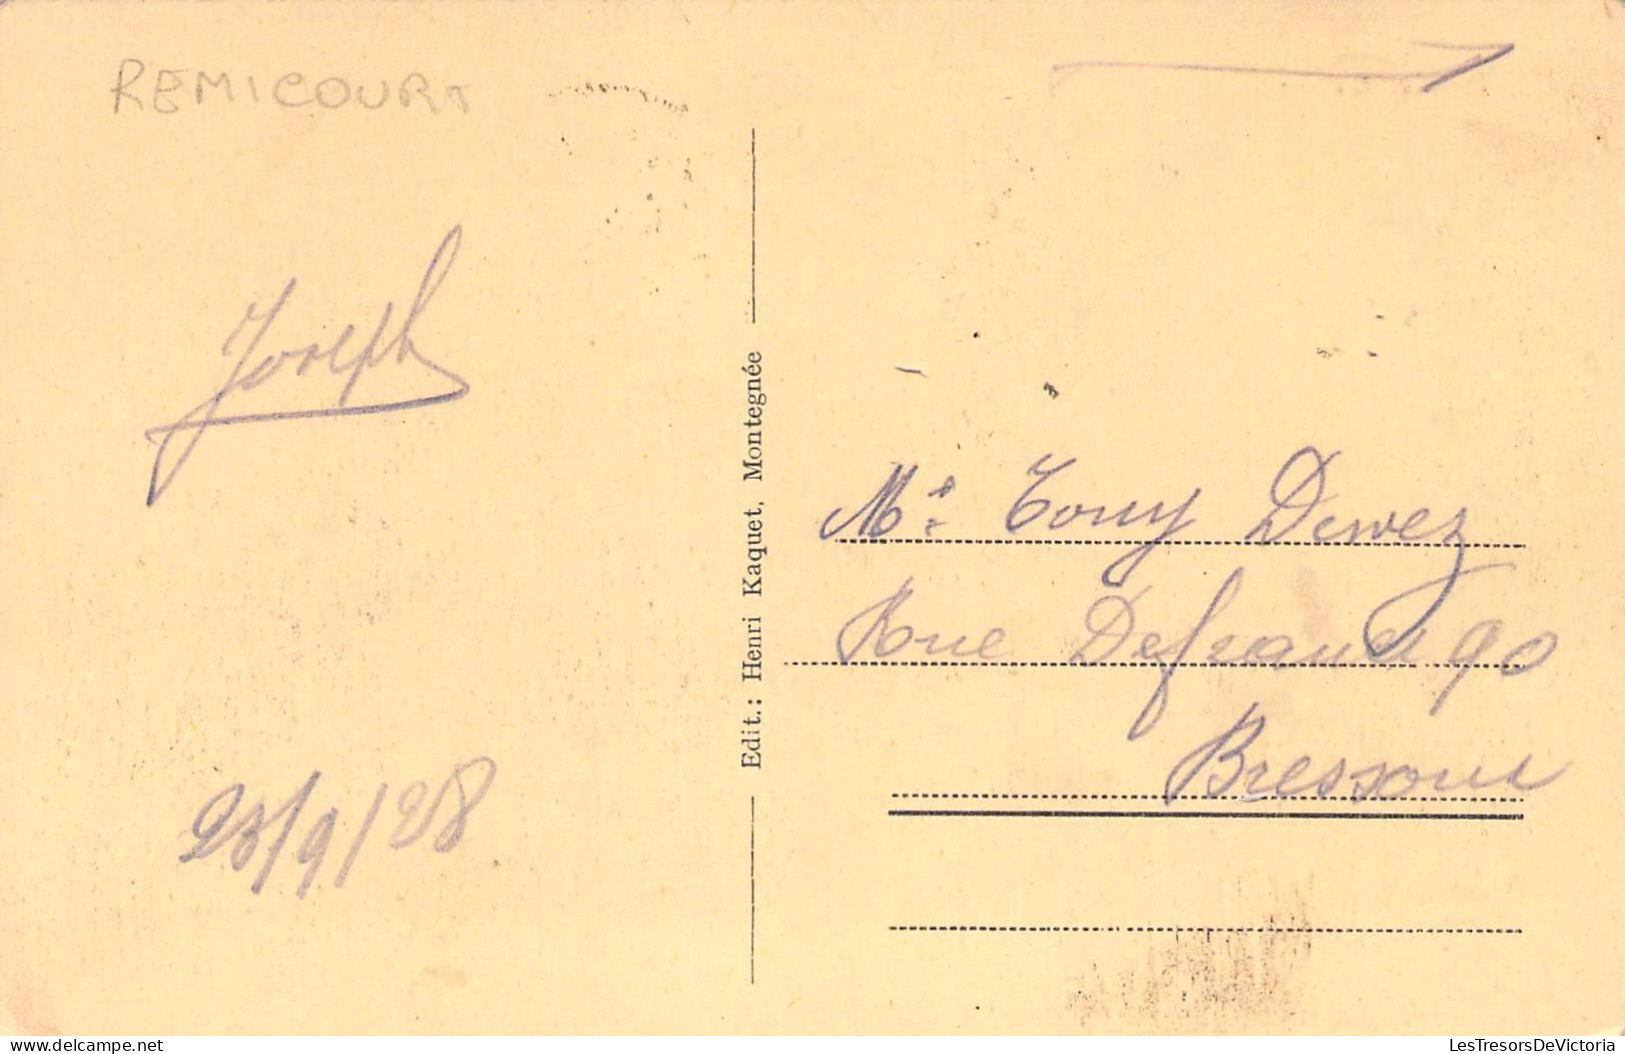 REMICOURT
Joseph
23/9/28
Edit.: Henri Kaquet, Montegnée
Mr Tony Dewez
Rue Defrance 90
Bressoux
LesTresorsDeVictoria
delcampe.net